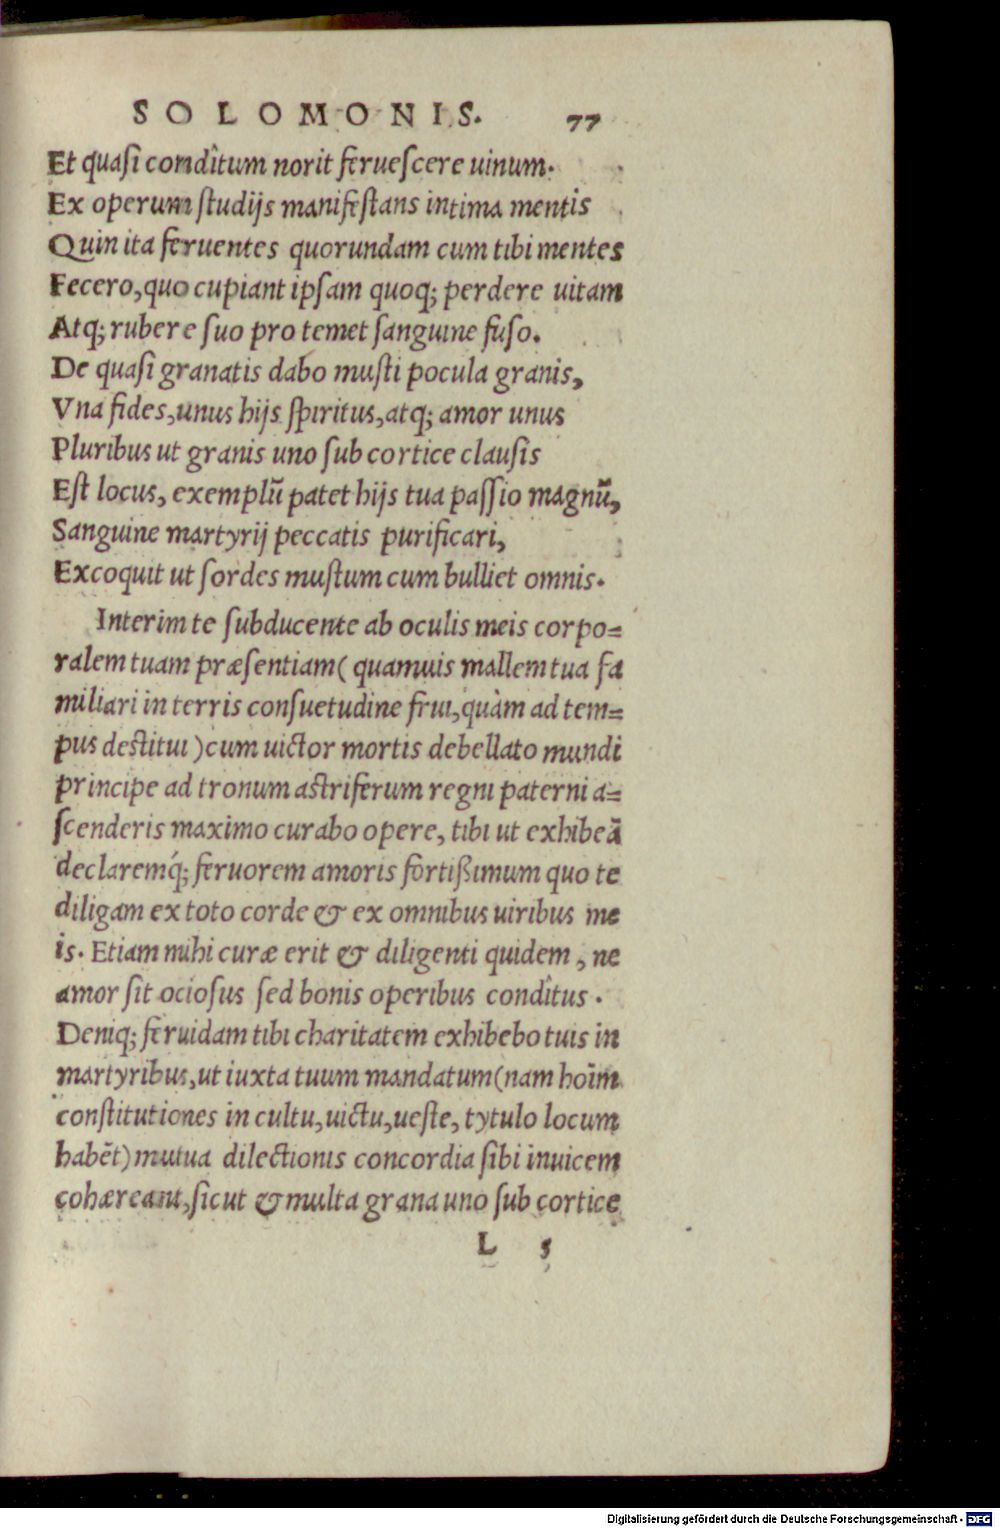 SOLOMONIS. 77
Et quasi condîtum norit feruescere uinum.
Ex operum studijs manifestans intima mentis
Quin ita feruentes quorundam cum tibi mentes
Fecero, quo cupiant ipsam quoq; perdere uitam
Atq; rubere suo pro temet sanguine fuso.
De quasi granatis dabo musti pocula granis,
Vna fides, unus hijs spiritus, atq; amor unus
Pluribus ut granis uno sub cortice clausis
Est locus, exemplũ patet hijs tua passio magnũ,
Sanguine martyrij peccatis purificari,
Excoquit ut sordes mustum cum bulliet omnis.
Interim te subducente ab oculis meis corpo=
ralem tuam præsentiam( quamuis mallem tua fa
miliari in terris consuetudine frui, quàm ad tem=
pus destitui )cum uictor mortis debellato mundi
principe ad tronum astriferum regni paterni a=
scenderis maximo curabo opere, tibi ut exhibeã
declaremq́; feruorem amoris fortißimum quo te
diligam ex toto corde & ex omnibus uiribus me
is. Etiam mihi curæ erit & diligenti quidem, ne
amor sit ociosus sed bonis operibus condîtus.
Deniq; feruidam tibi charitatem exhibebo tuis in
martyribus, ut iuxta tuum mandatum(nam hoĩm
constitutiones in cultu, uictu, ueste, tytulo locum
habẽt) mutua dilectionis concordia sibi inuicem
cohæreant, sicut & multa grana uno sub cortice
L 5
Digitalisierung gefördert durch die Deutsche Forschungsgemeinschaft - DFG